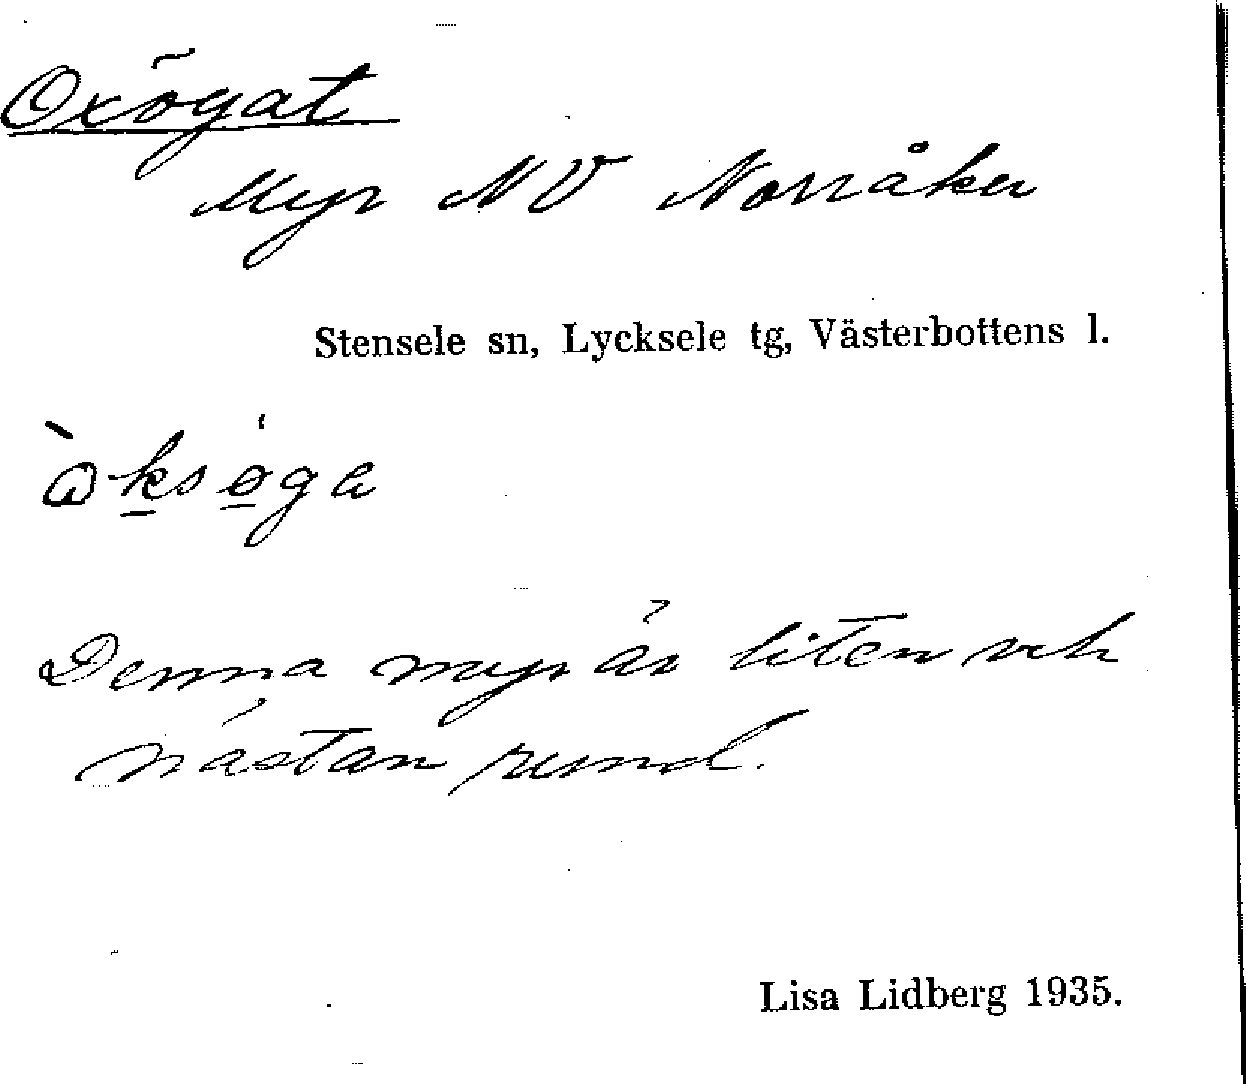 Oxögat
Myr NV Norråker
Stensele sn, Lycksele tg, Västerbottens l.
Denna myr är liten och
nästan rund.
Lisa Lidberg 1935.